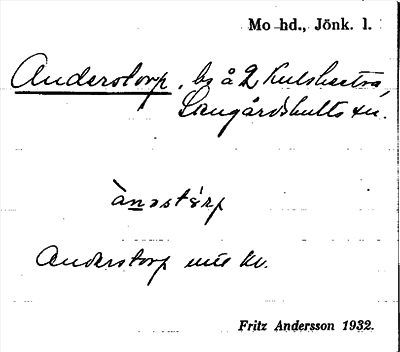 Mo hd., Jönk. l.
Anderstorp, bs å 2 Kulshestra,
Långårdshults sn.
ànəstérp
Anderstorp mtl kv.
Fritz Andersson 1932.